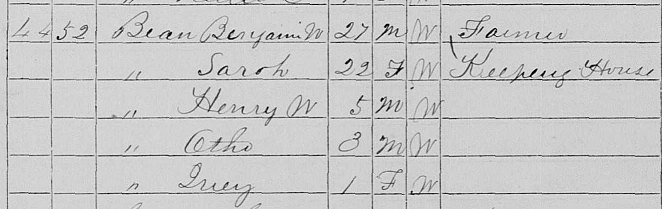 44 52 Bean Benjamin W 27 M W Farmer
" Sarah 22 F W Keeping House
" Henry W 5 M W
" Otho 3 M W
" 1 F W